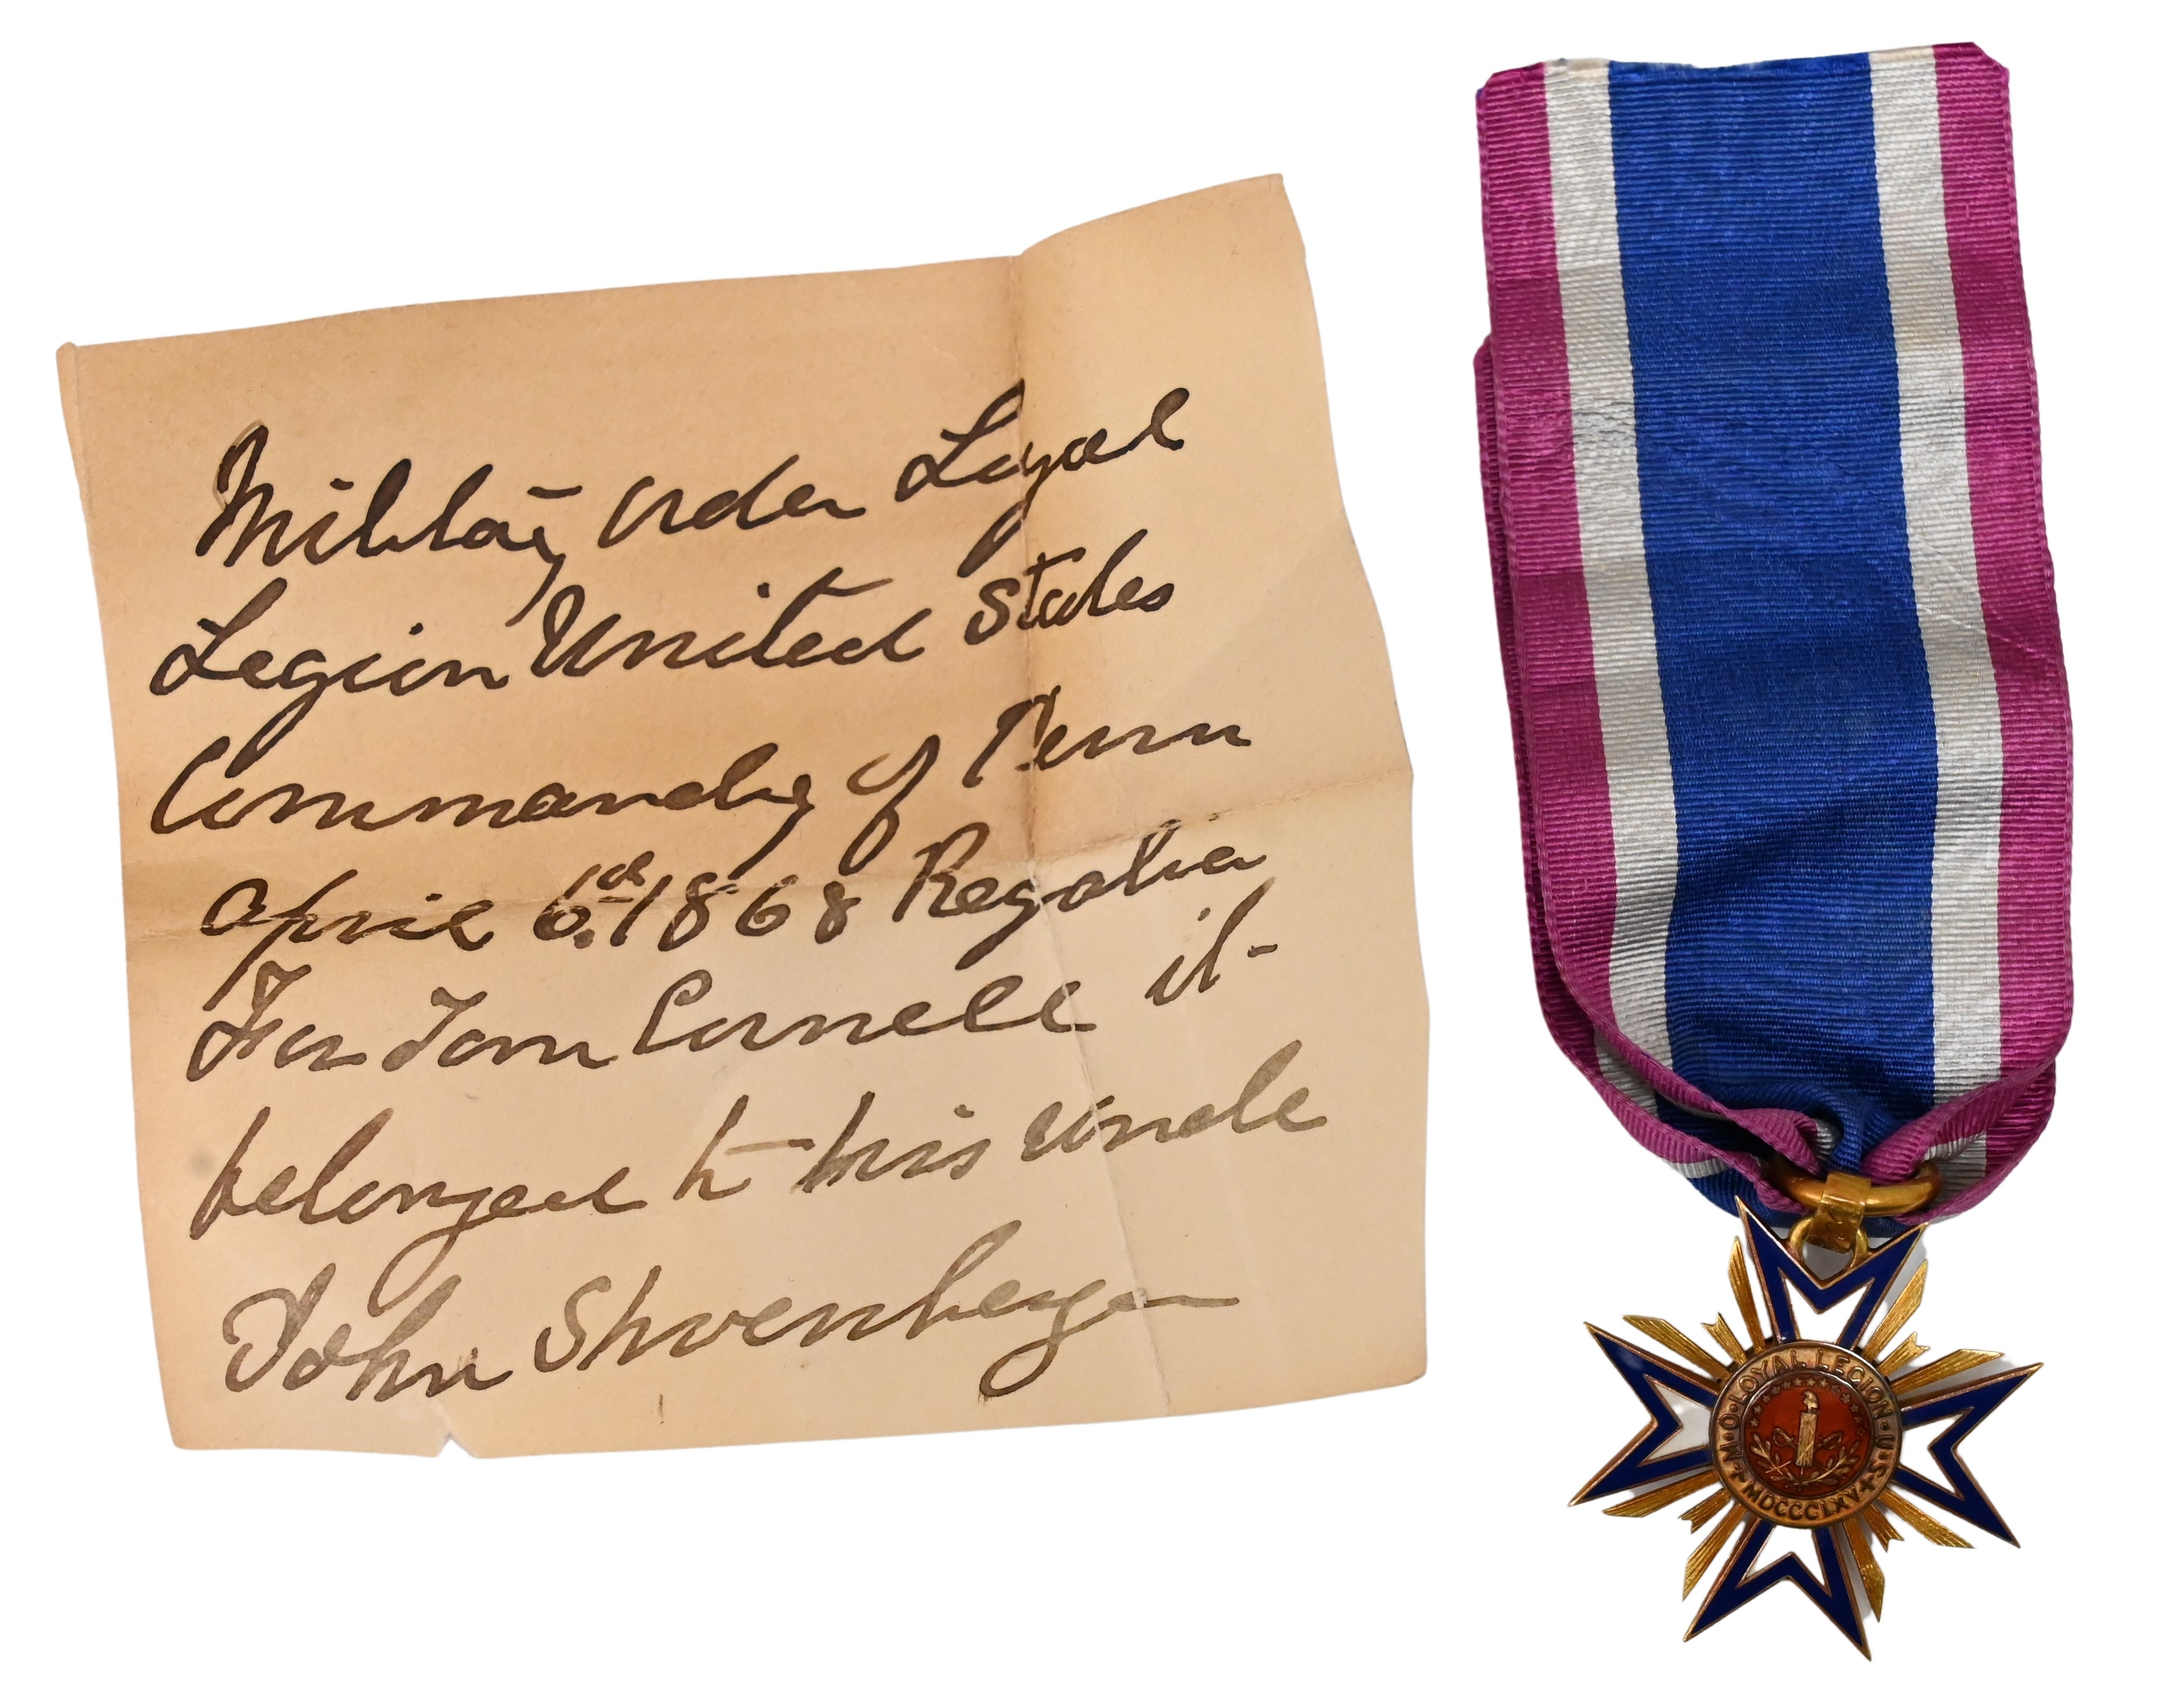 Military Order Loyal
Legion United States
Commandry of Penn
April 6.th 1868 Regalia
For Tom Cornell it
belonged to his uncle
John Shoenberger
M·O·LOYAL LEGION·U·S·
MDCCCLXV